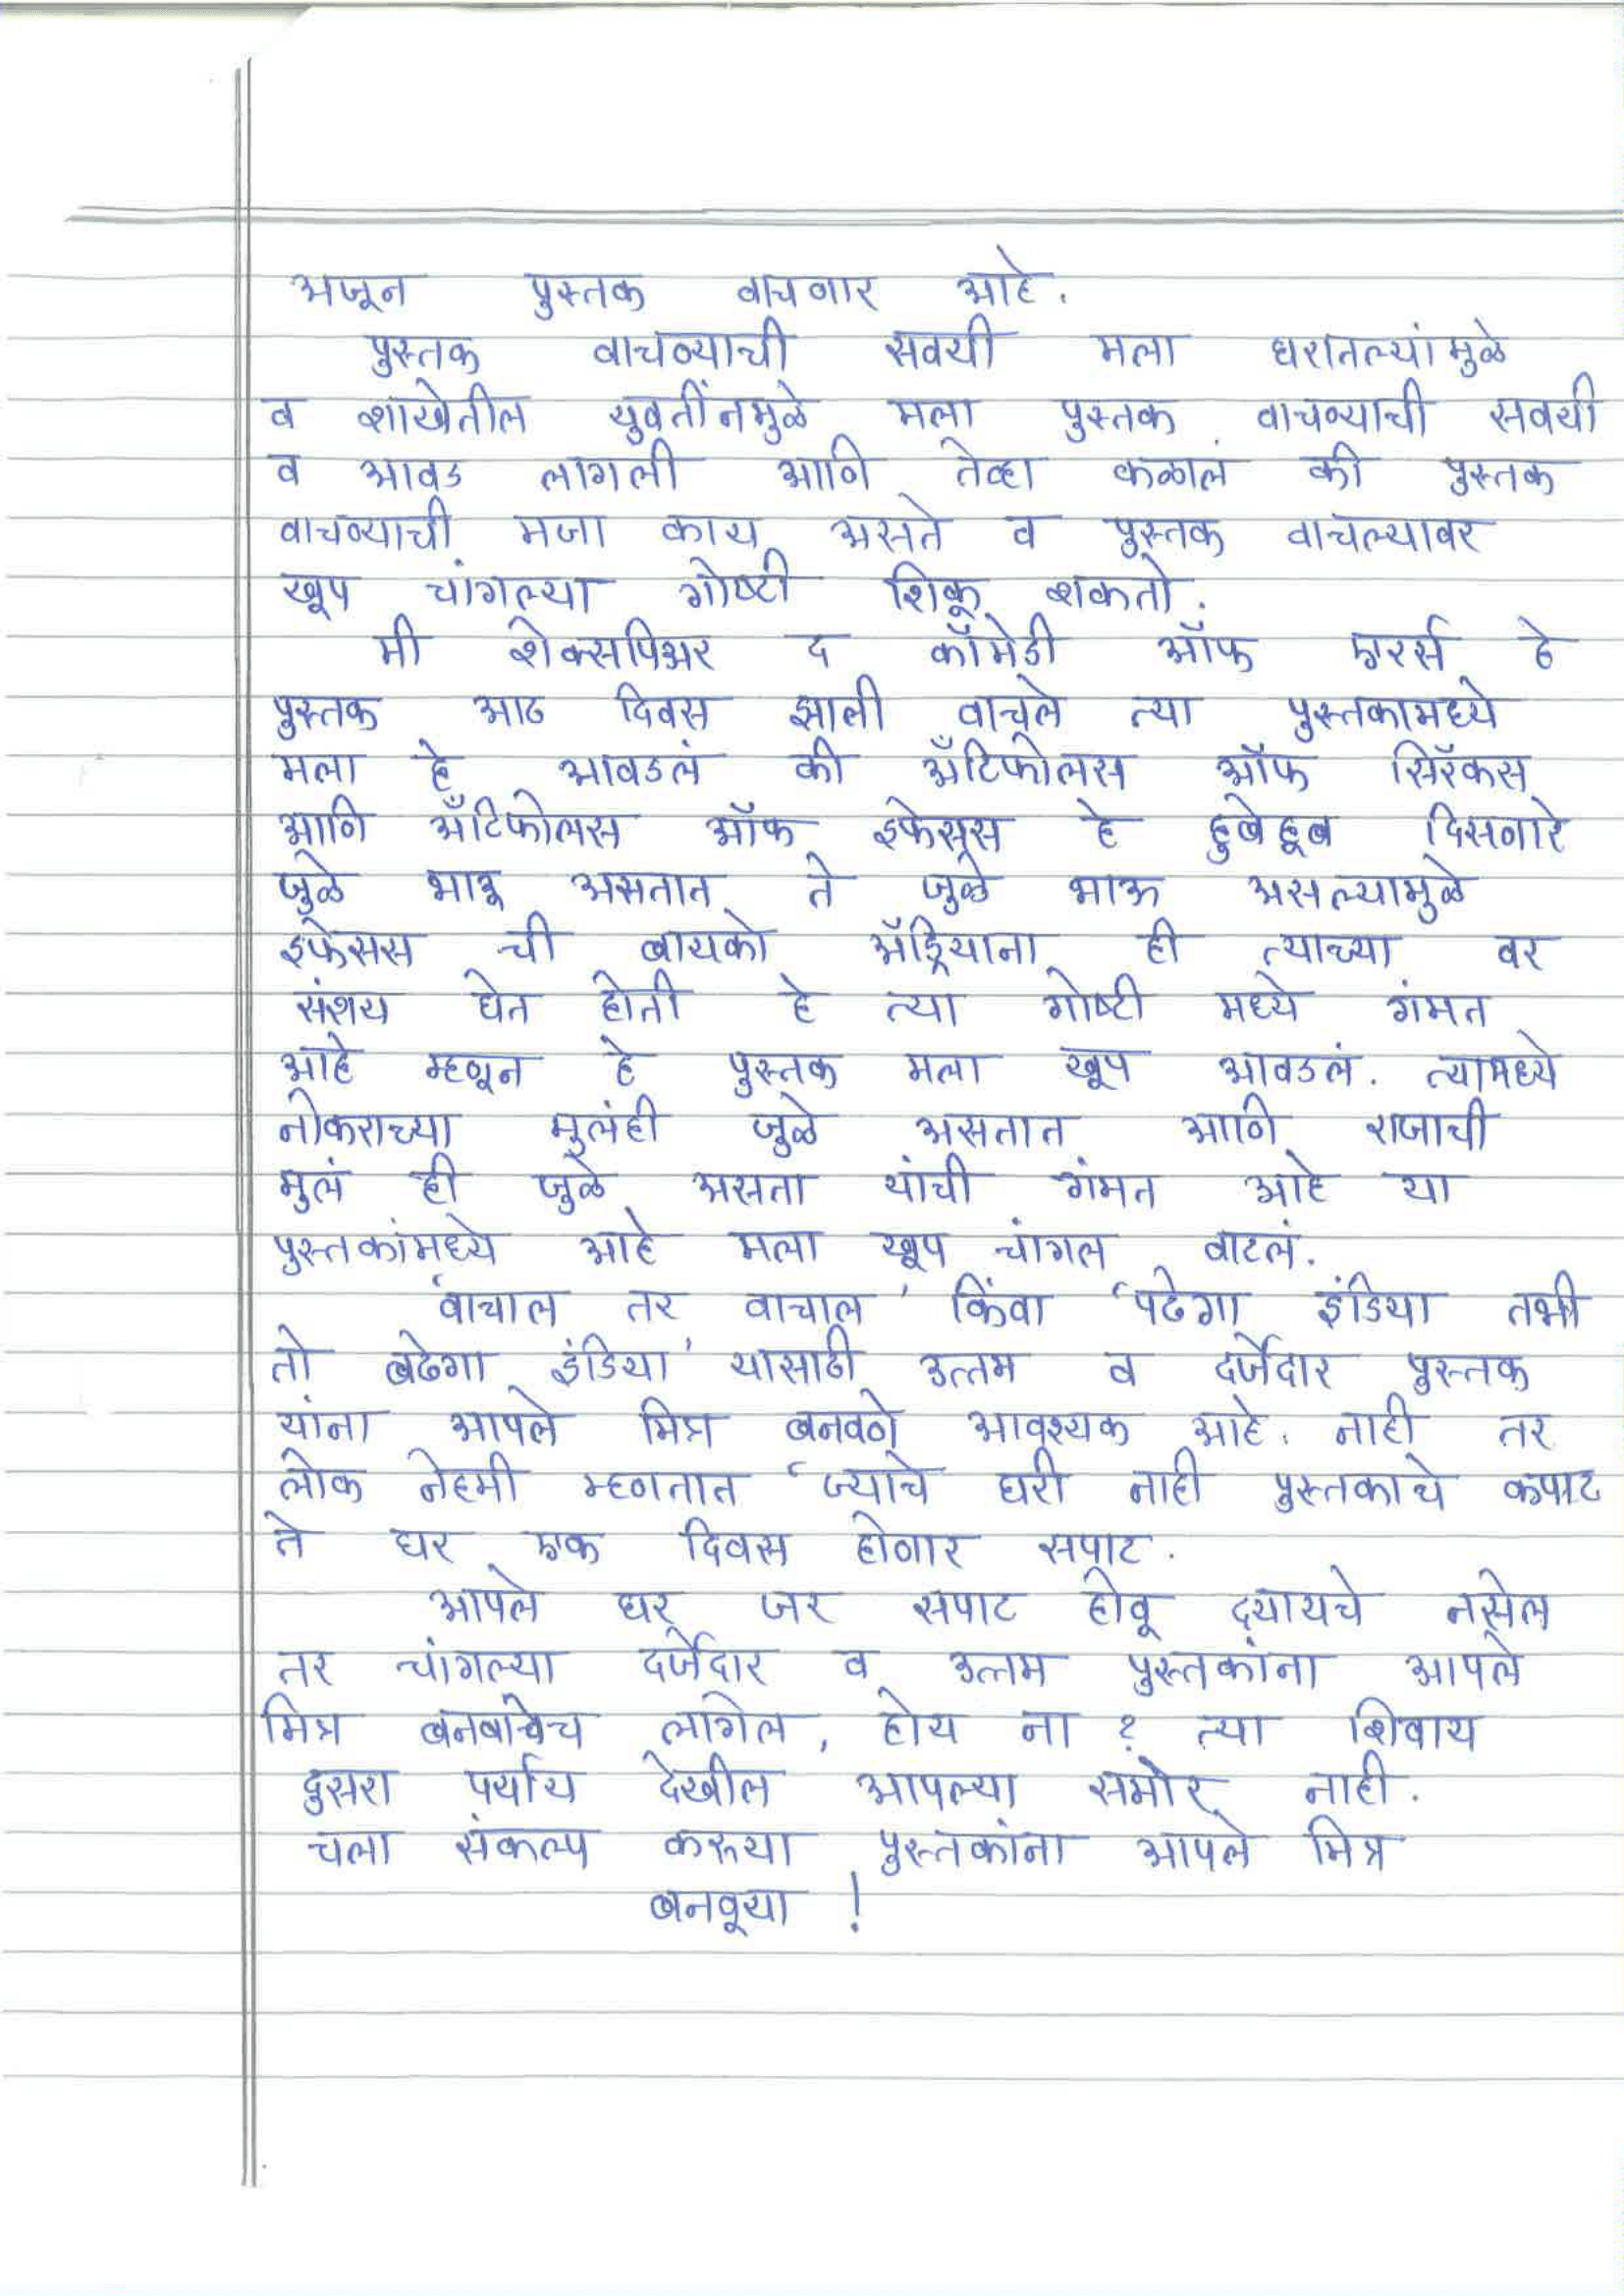 अजून पुस्तक वाचणार आहे.
पुस्तक वाचण्याची सवयी मला घरातल्यांमुळे
व शाखेतील युवतींनमुळे मला पुस्तक वाचण्याची सवयी
व आवड लागली आणि तेव्हा कळालं की पुस्तक
वाचण्याची मजा काय असते व पुस्तक वाचल्यावर
खूप चांगल्या गोष्टी शिकू शकतो.
मी शेक्सपिअर द कॉमेडी ऑफ एरर्स हे
पुस्तक आठ दिवस झाली वाचले त्या पुस्तकामध्ये
मला हे आवडलं की अँटिफोलस ऑफ सिरॅकस
आणि अँटिफोलस ऑफ इफेसस हे हुबेहूब दिसणारे
जुळे भाऊ असतात ते जुळे भाऊ असल्यामुळे
इफेसस ची बायको अॅड्रियाना ही त्याच्या वर
संशय घेत होती हे त्या गोष्टी मध्ये गंमत
आहे म्हणून हे पुस्तक मला खूप आवडलं. त्यामध्ये
नोकराच्या मुलंही जुळे असतात आणि राजाची
मुलं ही जुळे असता यांची गंमत आहे या
पुस्तकांमध्ये आहे मला खूप चांगल वाटलं.
'वाचाल तर वाचाल' किंवा 'पढेगा इंडिया तभी
तो बढेगा इंडिया' यासाठी उत्तम व दर्जेदार पुस्तक
यांना आपले मित्र बनवणे आवश्यक आहे. नाही तर
लोक नेहमी म्हणतात 'ज्याचे घरी नाही पुस्तकाचे कपाट
ते घर एक दिवस होणार सपाट.
आपले घर जर सपाट होवू द्यायचे नसेल
तर चांगल्या दर्जेदार व उत्तम पुस्तकांना आपले
मित्र बनवावेच लागेल, होय ना? त्या शिवाय
दुसरा पर्याय देखील आपल्या समोर नाही.
चला संकल्प करुया पुस्तकांना आपले मित्र
बनवूया !